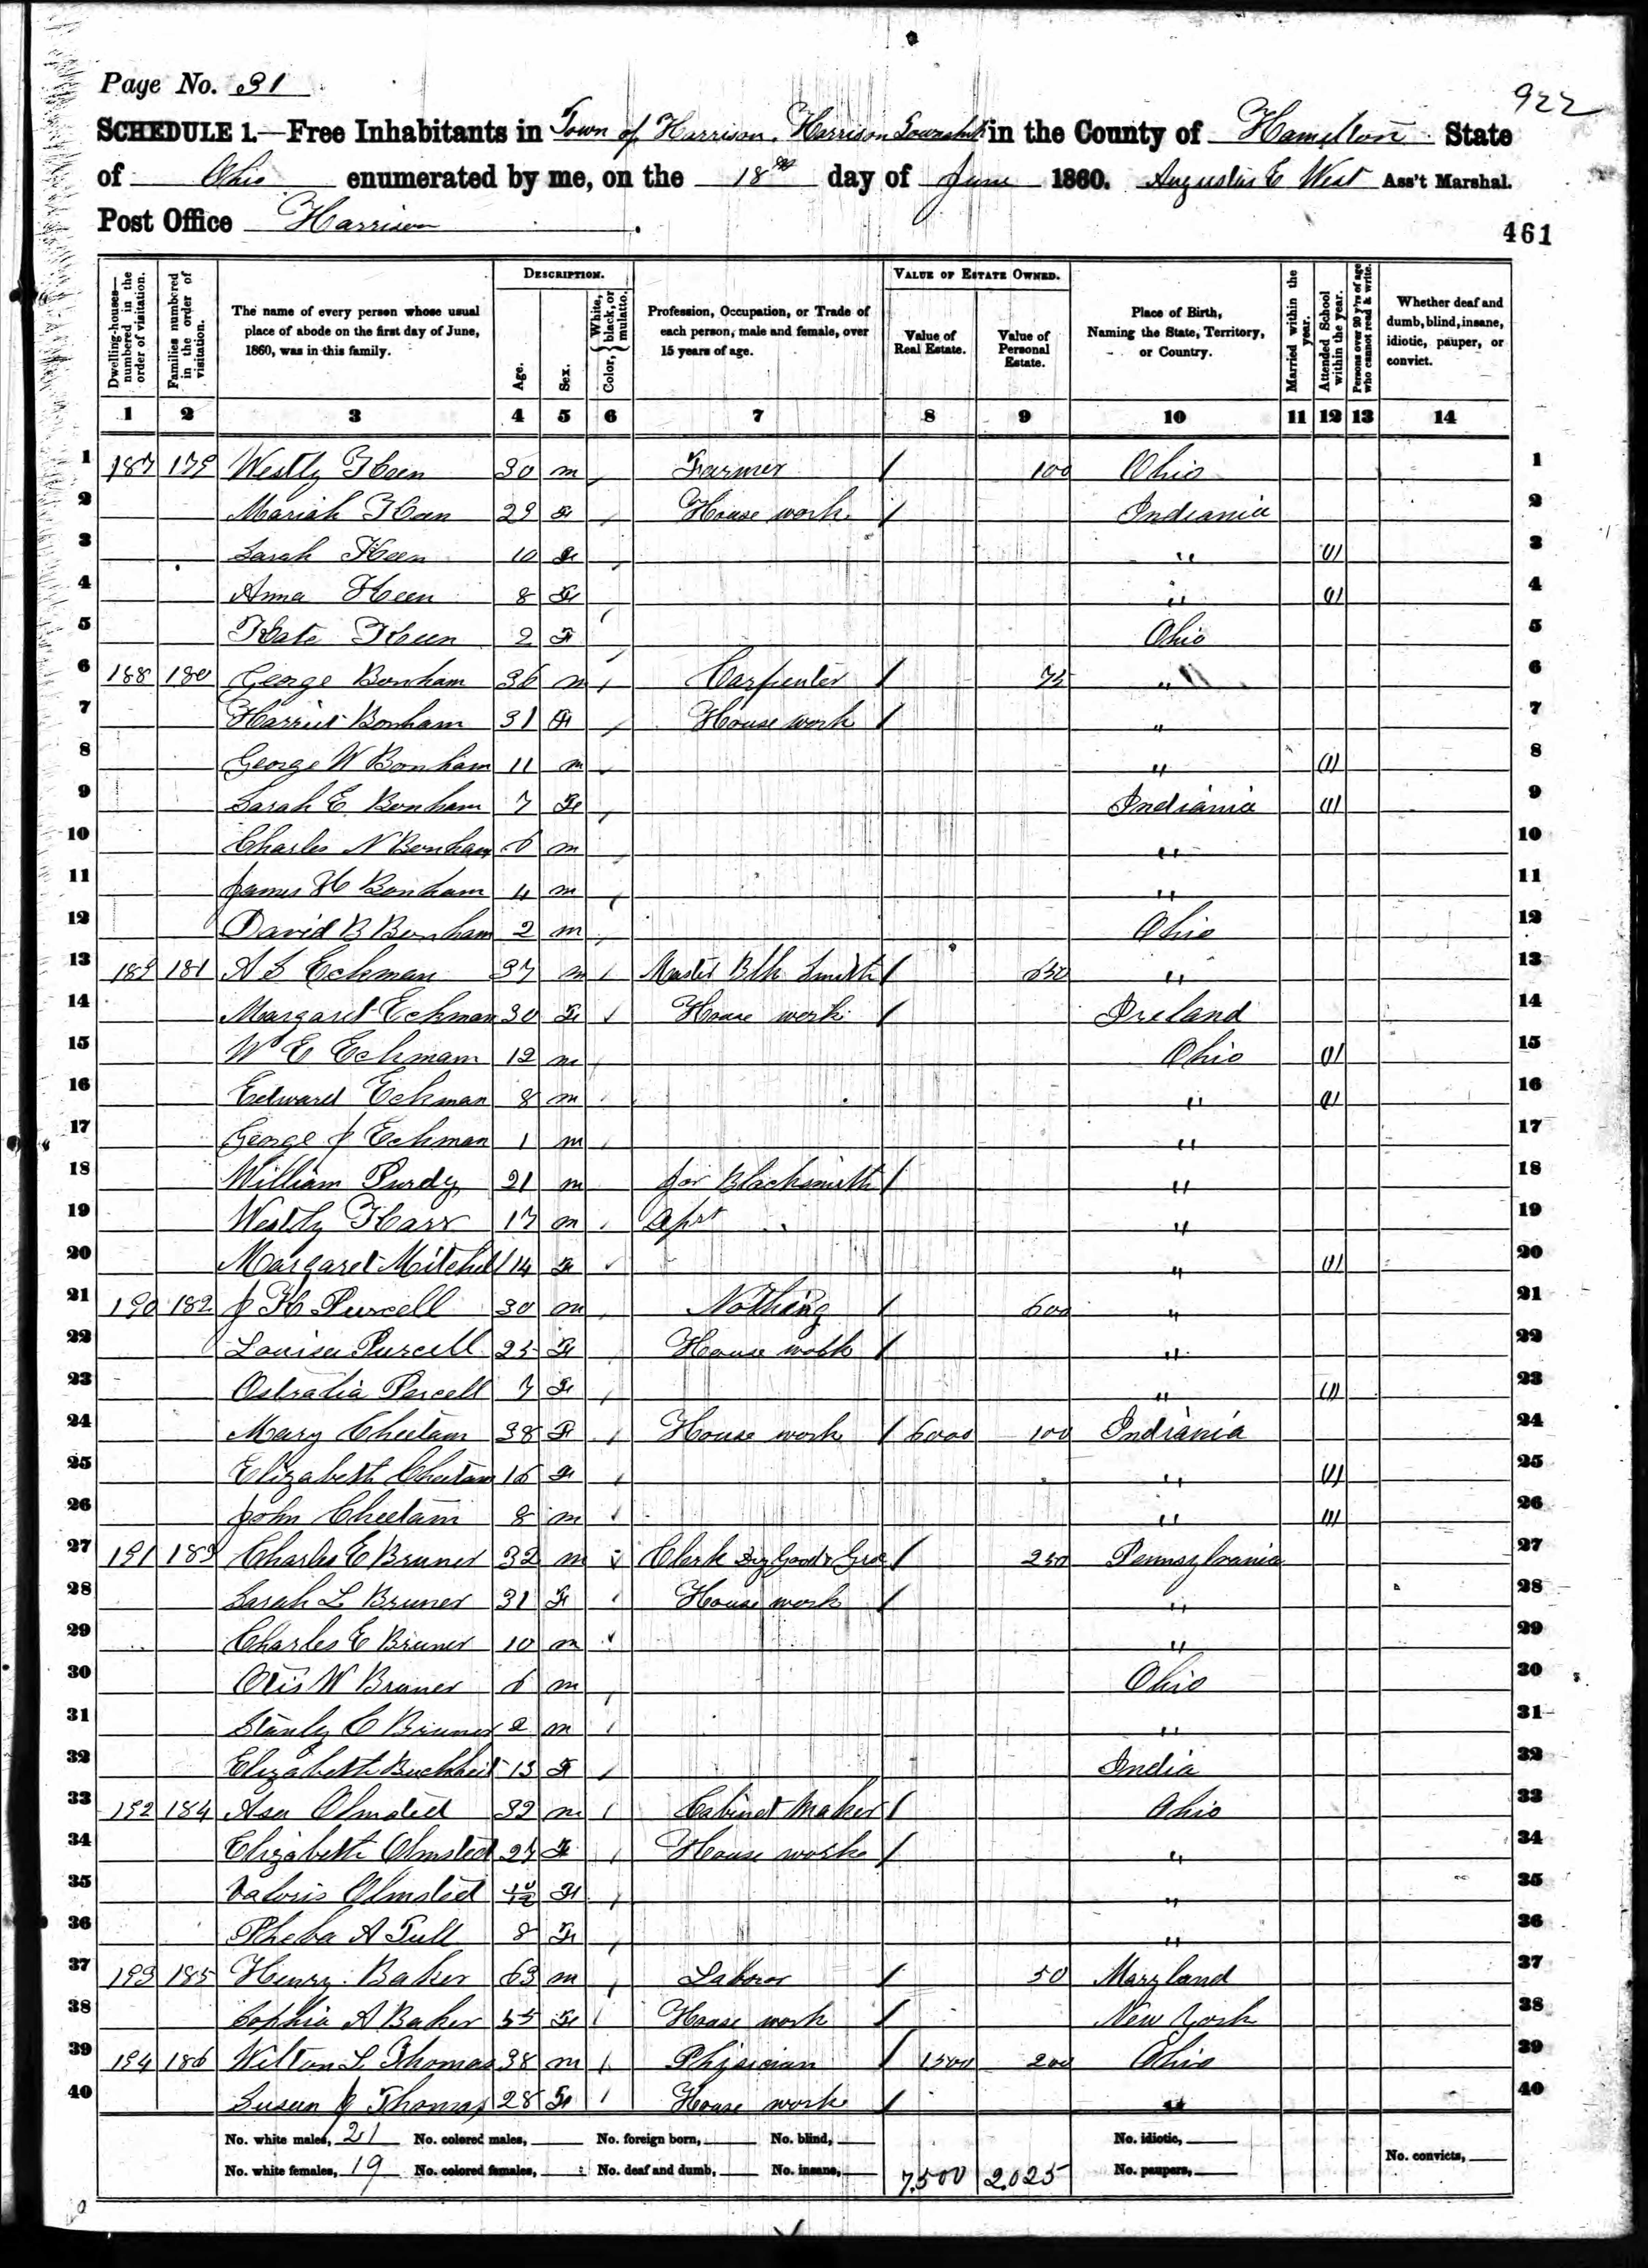 Page No. 31
922
SCHEDULE 1.—Free Inhabitants in Town of Harrison, Harrison Township in the County of Hamilton State
of Ohio enumerated by me, on the 18th day of June 1860. Augustus E West Ass't Marshal.
Post Office Harrison.
461
DESCRIPTION. VALUE OF ESTATE OWNED.
Dwelling-houses—numbered in the order of visitation.
Families numbered in the order of visitation.
The name of every person whose usual place of abode on the first day of June, 1860, was in this family.
Age.
Sex.
Color, { White, black, or mulatto.
Profession, Occupation, or Trade of each person, male and female, over 15 years of age.
Value of Real Estate.
Value of Personal Estate.
Place of Birth, Naming the State, Territory, or Country.
Married within the year.
Attended School within the year.
Persons over 20 y'rs of age who cannot read & write.
Whether deaf and dumb, blind, insane, idiotic, pauper, or convict.
1 2 3 4 5 6 7 8 9 10 11 12 13 14
1 187 179 Westly Keen 30 m / Farmer / 100 Ohio 1
2 Mariah Keen 29 F / House work / Indiania 2
3 Sarah Keen 10 F / " /1/ 3
4 Anna Keen 8 F " /1/ 4
5 Kate Keen 2 F Ohio 5
6 188 180 George Bonham 36 m / Carpenter / 75 " 6
7 Harriet Bonham 31 F / House work / " 7
8 George W Bonham 11 m / " /1/ 8
9 Sarah E Bonham 7 F / Indiania /1/ 9
10 Charles N Bonham 6 m / " 10
11 James H Bonham 4 m / " 11
12 David B Bonham 2 m / Ohio 12
13 189 181 A S Eckman 37 m / Master Blk Smith / 650 " 13
14 Margaret Eckman 30 F / House work / Ireland 14
15 W E Eckman 12 m / Ohio /1/ 15
16 Edward Eckman 8 m / " /1/ 16
17 George J Eckman 1 m / " 17
18 William Purdy 21 m Jor Blacksmith / " 18
19 Westly Karr 17 m / Aprt " 19
20 Margaret Mitchel 14 F / " /1/ 20
21 190 182 J H Purcell 30 m / Nothing / 600 " 21
22 Louisa Purcell 25 F / House work / " 22
23 Purcell 7 F / " /1/ 23
24 Mary Cheetam 38 F / House work / 6000 100 Indiania 24
25 Elizabeth Cheetam 16 F / " /1/ 25
26 John Cheetam 8 m / " /1/ 26
27 191 183 Charles E Bruner 32 m / Clerk Dry Goods & Gro / 250 Pennsylvania 27
28 Sarah L Bruner 31 F / House work / " 28
29 Charles E Bruner 10 m / " 29
30 Otis W Bruner 6 m / Ohio 30
31 Stanly C Bruner 2 m / " 31
32 Elizabeth 13 F / India 32
33 192 184 Asa Olmsted 32 m / Cabinet Maker / Ohio 33
34 Elizabeth Olmsted 27 F / House work / " 34
35 Valoris Olmsted 10/12 F / " 35
36 Pheba A Tull 8 F / " 36
37 193 185 Henry Baker 63 m / Labour / 50 Maryland 37
38 Sophia A Baker 55 F / House work / New York 38
39 194 186 Wilton L Thomas 38 m / Physician / 1500 200 Ohio 39
40 Susan J Thomas 28 F / House work / " 40
No. white males, 21 No. colored males, No. foreign born, No. blind, No. idiotic,
No. white females, 19 No. colored females, No. deaf and dumb, No. insane, 7,500 2,025 No. paupers, No. convicts,